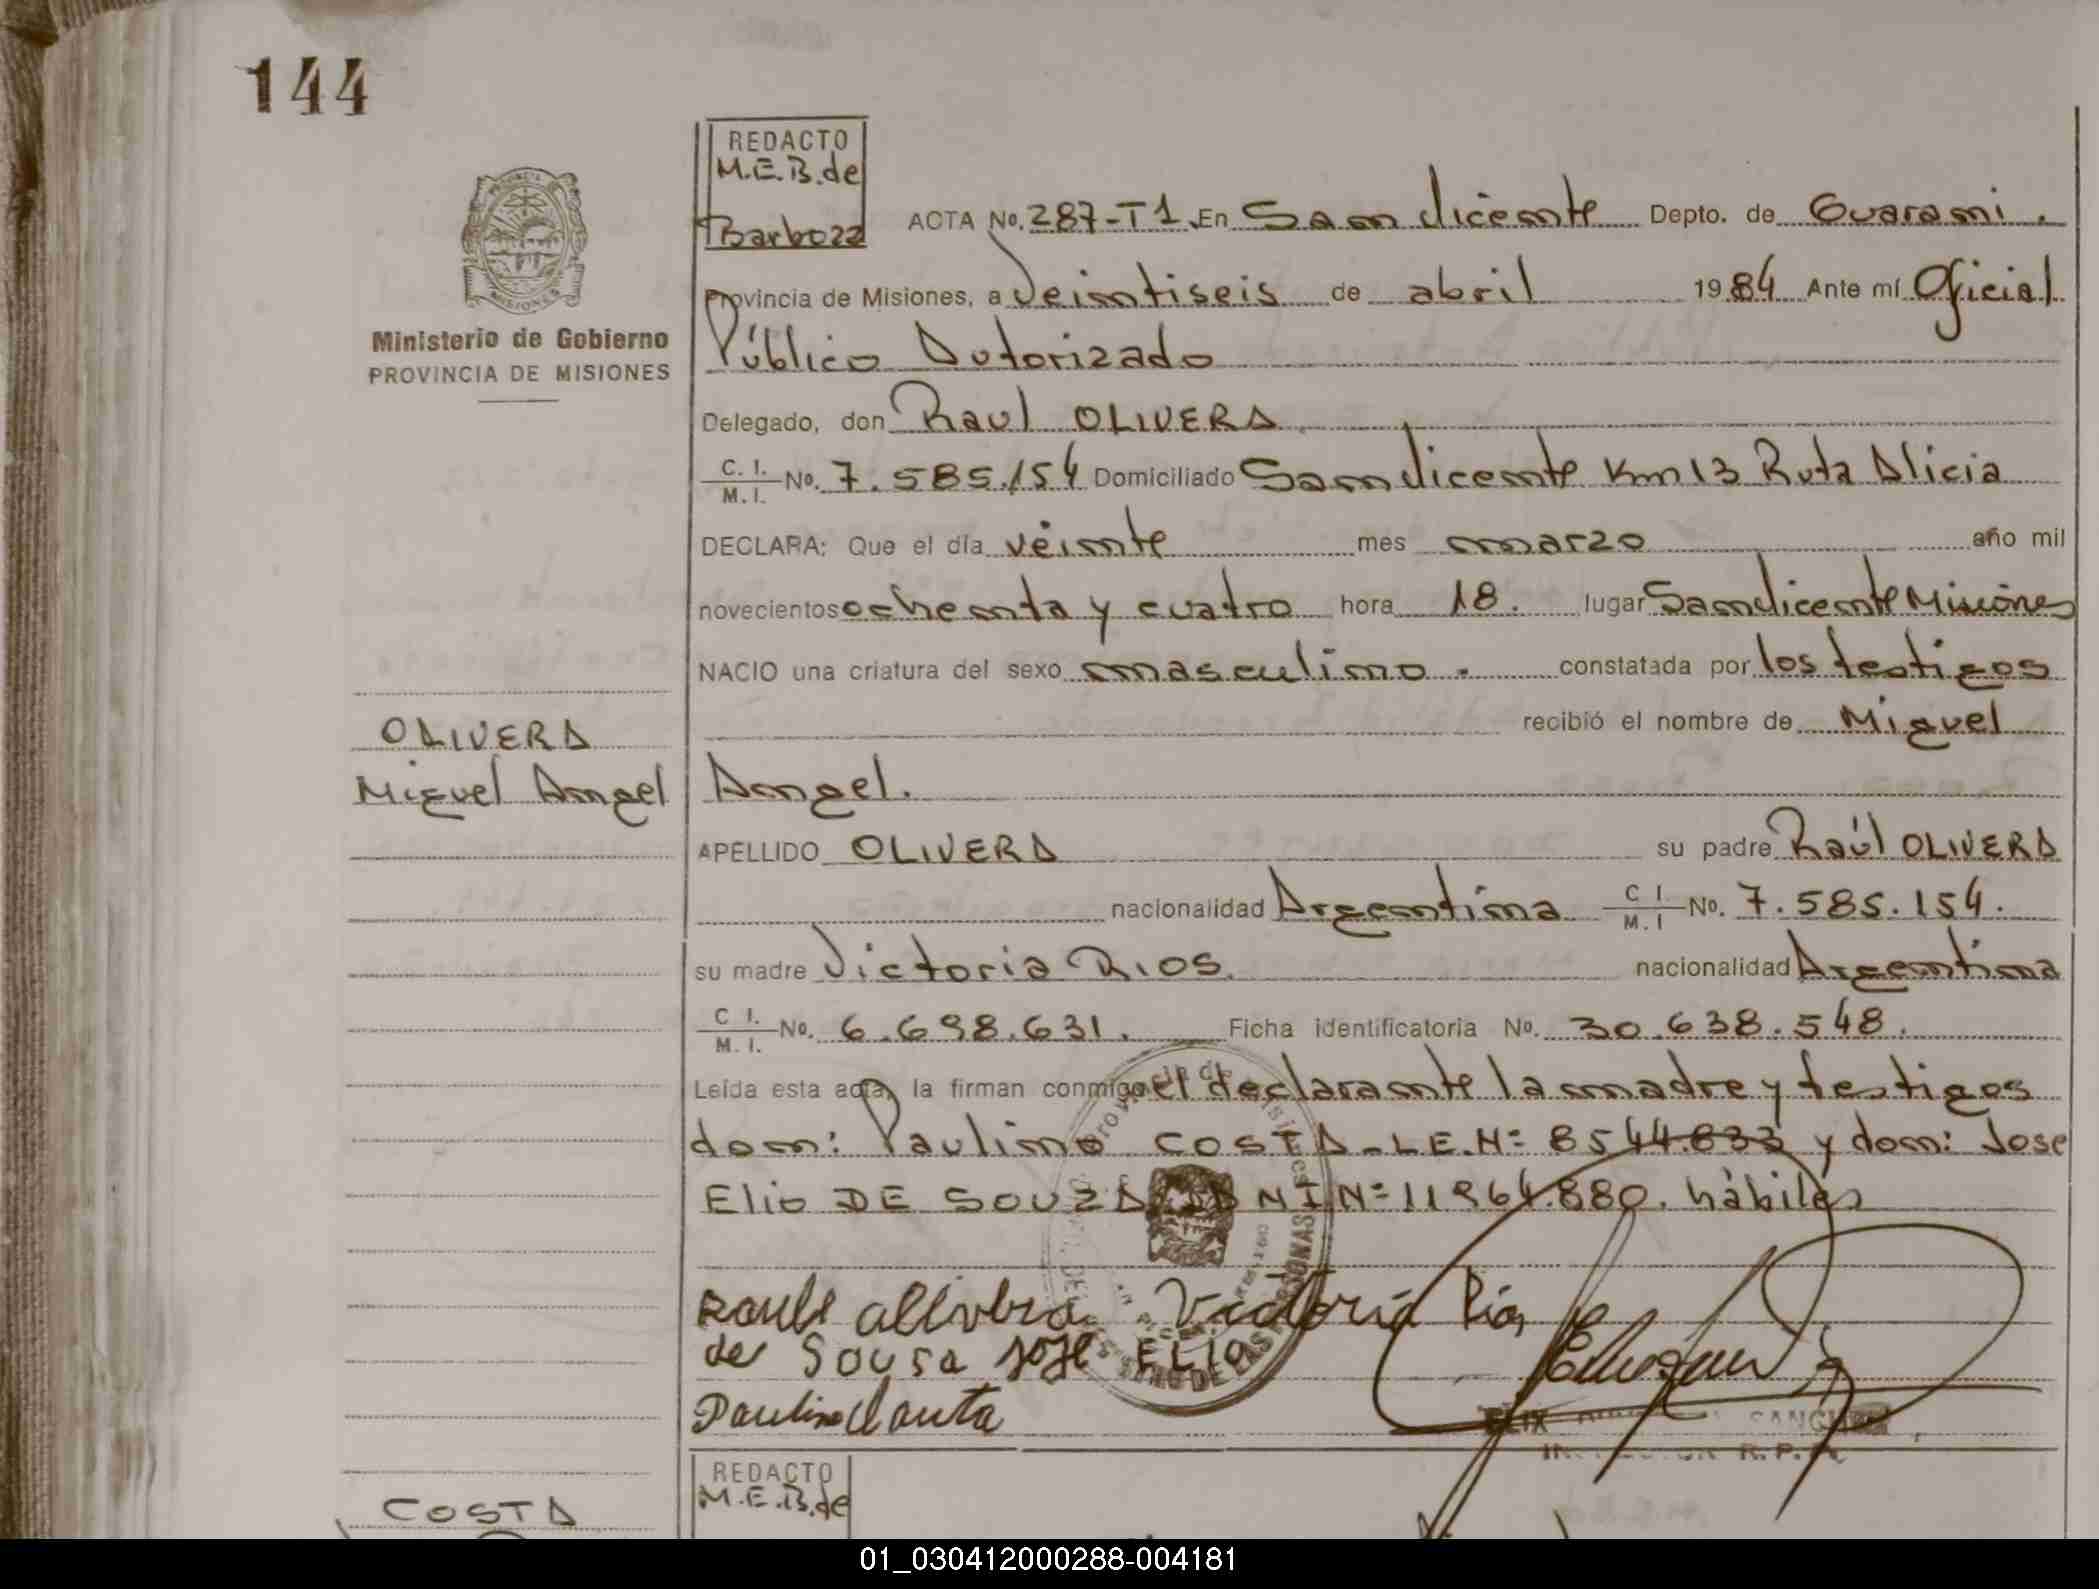 144
REDACTO
M.E.B. de
Barboza
ACTA No. 287-T1 En San Vicente Depto. de Guarani.
Ministerio de Gobierno
PROVINCIA DE MISIONES
Provincia de Misiones, a Veintiseis de abril 1984 Ante mí Oficial
Público Autorizado
Delegado, don Raul OLIVERA
C. I. / M. I. No. 7.585.154 Domiciliado San Vicente Km 13 Ruta Alicia
DECLARA: Que el día veinte mes marzo año mil
novecientos ochenta y cuatro hora 18. lugar San Vicente Misiones
NACIO una criatura del sexo masculino. constatada por los testigos
recibió el nombre de Miguel
OLIVERA
Miguel Angel
Angel.
APELLIDO OLIVERA su padre Raúl OLIVERA
nacionalidad Argentina C I. / M. I No. 7.585.154.
su madre Victoria RIOS. nacionalidad Argentina
C I. / M. I. No. 6.698.631. Ficha identificatoria No. 30.638.548.
Leída esta acta, la firman conmigo el declarante la madre y testigos
don: Paulino COSTA-L.E.Nº 8544.833 y don: Jose
Elio DE SOUZA DNI Nº 11964.880. hábiles
Victoria Rios
de Sousa jose ELIO
REDACTO
M.E.B. de
COSTA
01_030412000288-004181